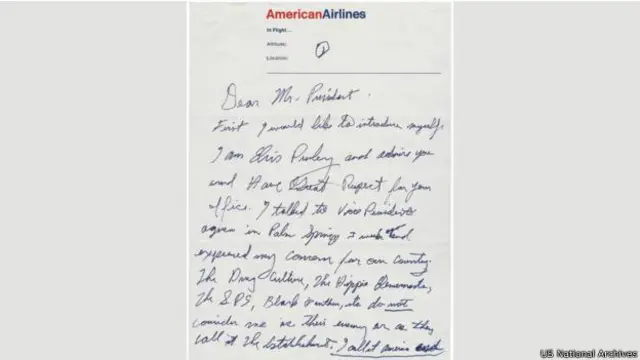 AmericanAirlines
In Flight...
Altitude:
Location:
1
Dear Mr. President.
First I would like to introduce myself.
I am Elvis Presley and admire you
and Have Great Respect for your
office. I talked to Vice President
Agnew in Palm Springs 3 weeks and
expressed my concern for our country.
The Drug Culture, The Hippie Elements,
The SDS, Black Panthers, etc do not
consider me as their enemy or as they
call it The Establishment. I call it America and
US National Archives